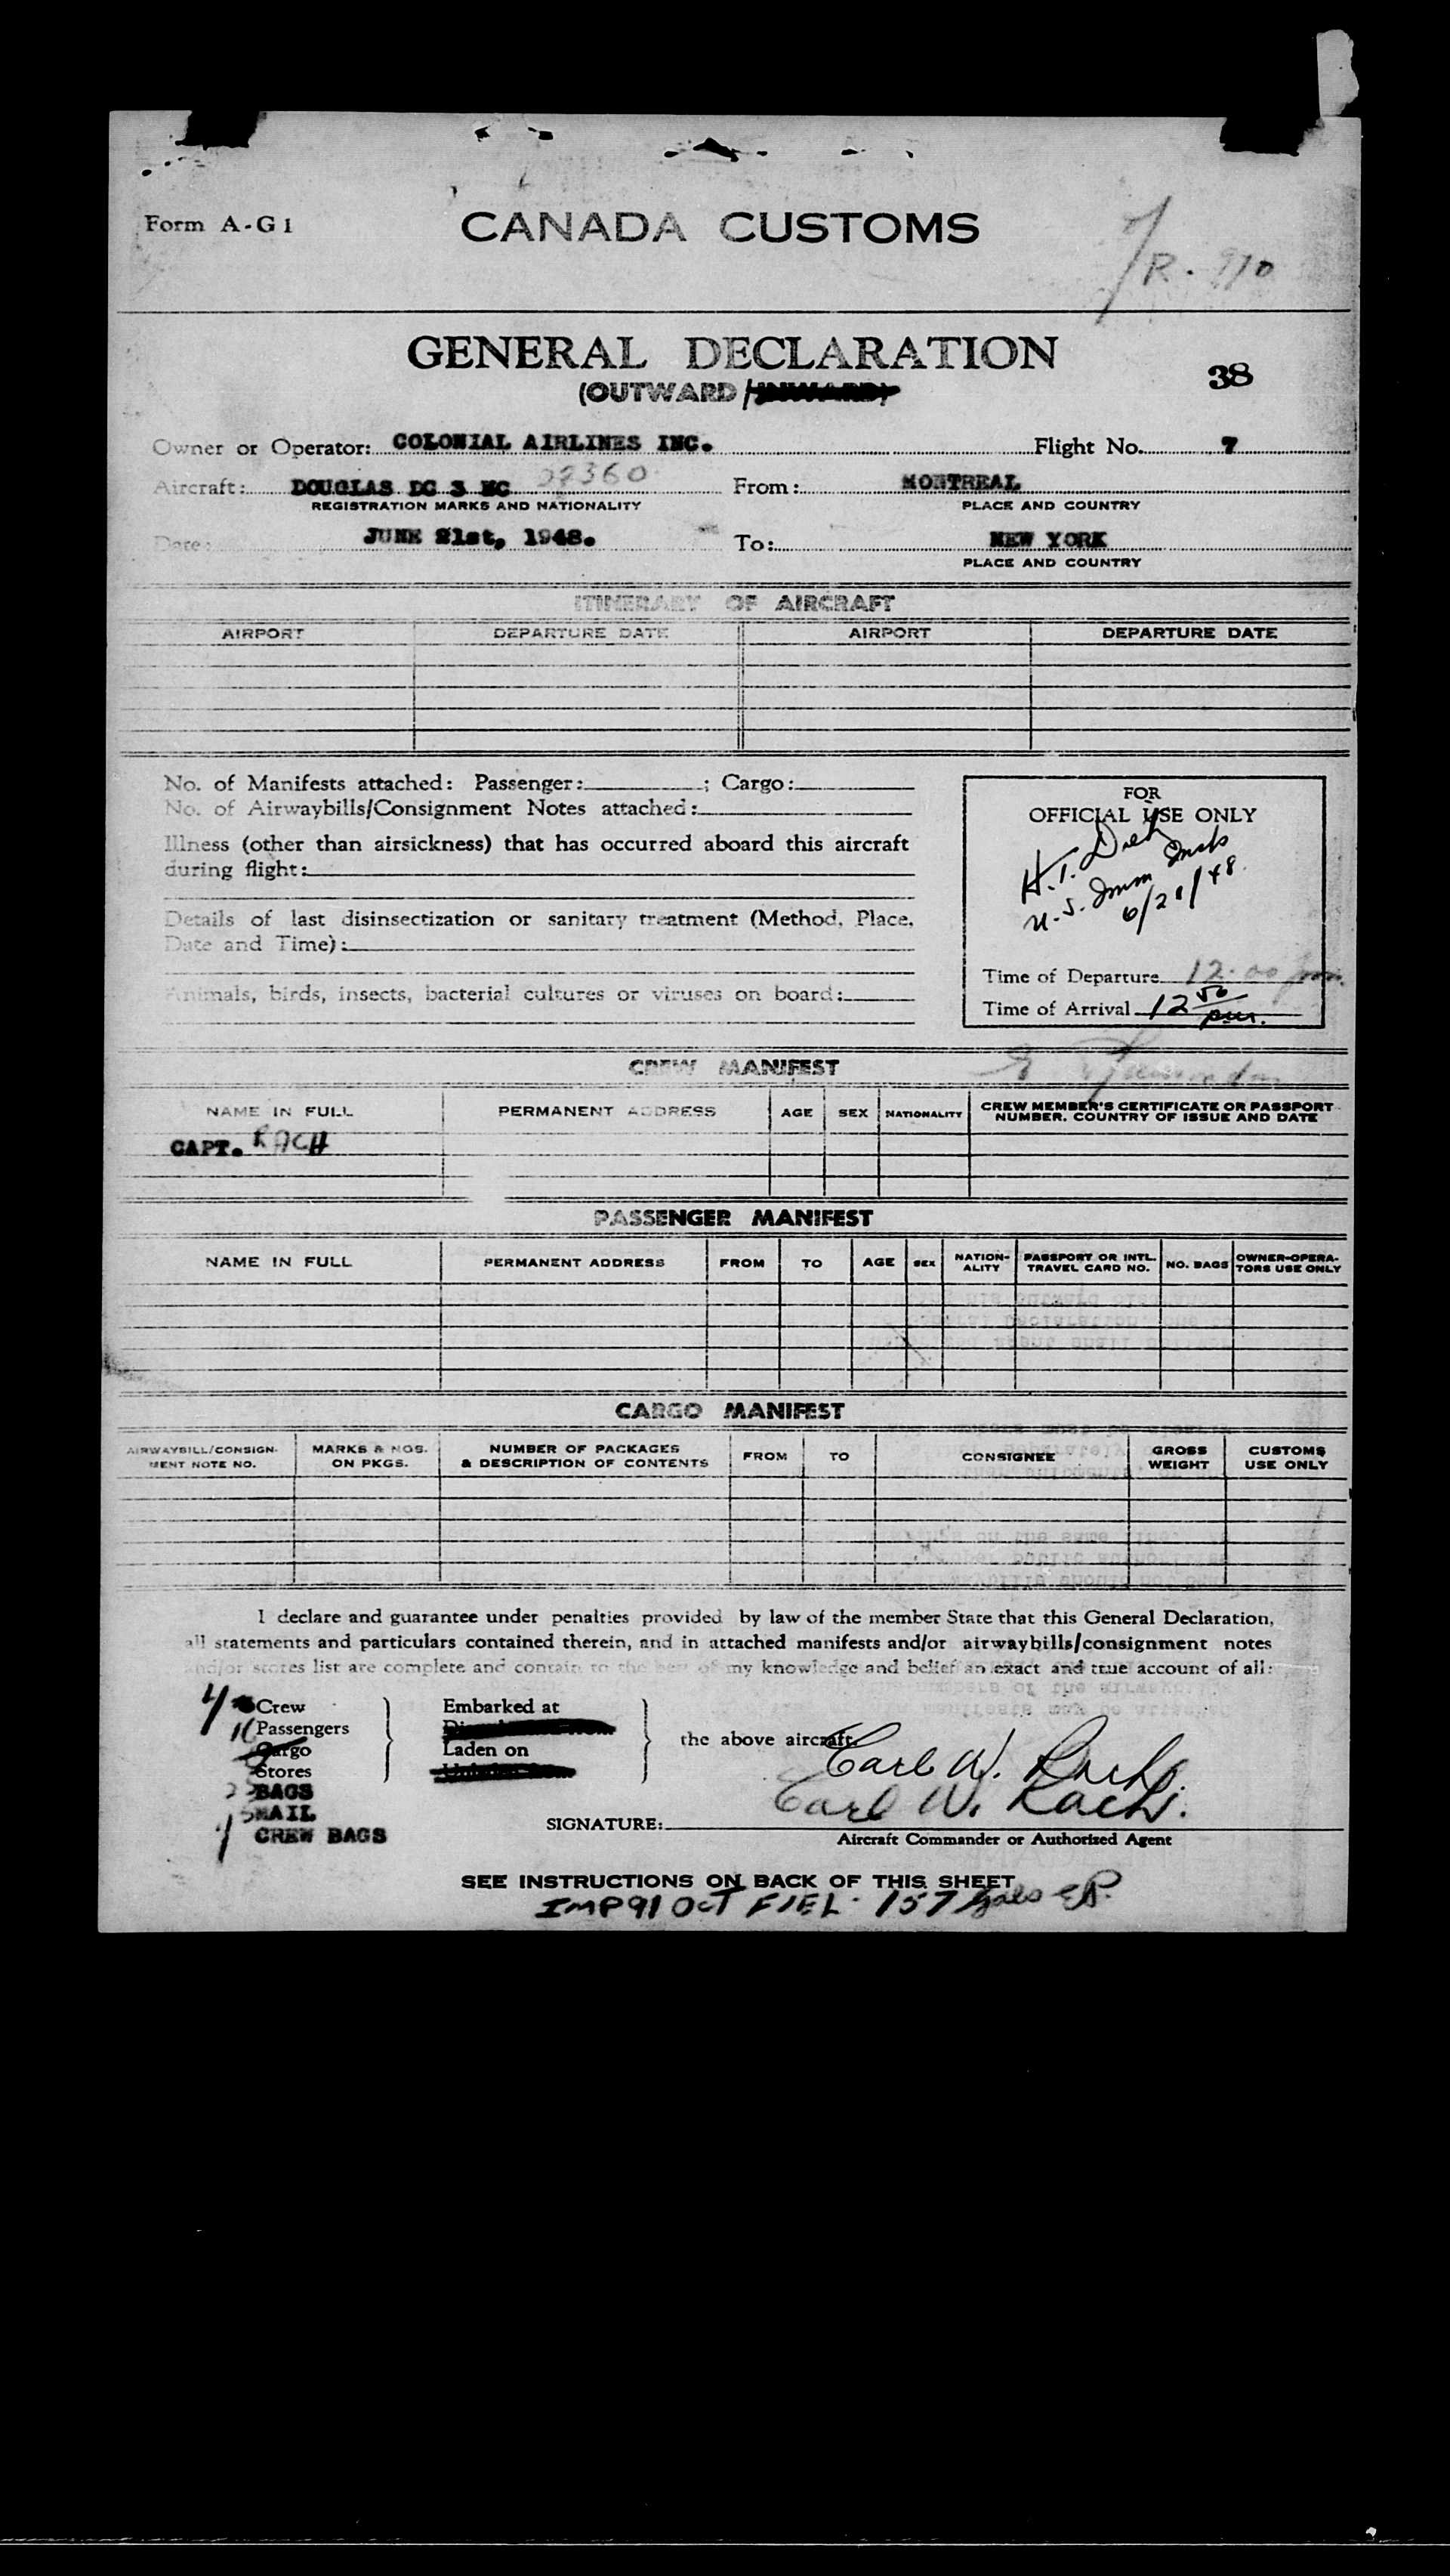 Form A-G1
CANADA CUSTOMS
R. 910
GENERAL DECLARATION
(OUTWARD /
38
Owner or Operator: COLONIAL AIRLINES INC. Flight No. 7
Aircraft: DOUGLAS DC 3 NC 27360 From: MONTREAL
REGISTRATION MARKS AND NATIONALITY PLACE AND COUNTRY
Date: JUNE 21st, 1948. To: NEW YORK
PLACE AND COUNTRY
ITINERARY OF AIRCRAFT
AIRPORT DEPARTURE DATE AIRPORT DEPARTURE DATE
No. of Manifests attached: Passenger: ; Cargo:
No. of Airwaybills/Consignment Notes attached:
Illness (other than airsickness) that has occurred aboard this aircraft
during flight:
Details of last disinsectization or sanitary treatment (Method, Place,
Date and Time):
Animals, birds, insects, bacterial cultures or viruses on board:
FOR
OFFICIAL USE ONLY
H.T.
U.S. Imm Insp
6/21/48
Time of Departure 12:00 pm.
Time of Arrival 12 50 pm.
CREW MANIFEST
NAME IN FULL PERMANENT ADDRESS AGE SEX NATIONALITY CREW MEMBER'S CERTIFICATE OR PASSPORT
NUMBER, COUNTRY OF ISSUE AND DATE
CAPT. RACH
PASSENGER MANIFEST
NAME IN FULL PERMANENT ADDRESS FROM TO AGE SEX NATION-
ALITY PASSPORT OR INTL.
TRAVEL CARD NO. NO. BAGS OWNER-OPERA-
TORS USE ONLY
CARGO MANIFEST
AIRWAYBILL/CONSIGN-
MENT NOTE NO. MARKS & NOS.
ON PKGS. NUMBER OF PACKAGES
& DESCRIPTION OF CONTENTS FROM TO CONSIGNEE GROSS
WEIGHT CUSTOMS
USE ONLY
I declare and guarantee under penalties provided by law of the member State that this General Declaration,
all statements and particulars contained therein, and in attached manifests and/or airwaybills/consignment notes
and/or stores list are complete and contain to the best of my knowledge and belief an exact and true account of all:
4 Crew
Passengers
Cargo
Stores
BAGS
MAIL
CREW BAGS
Embarked at
Laden on
the above aircraft.
Earl W. Rach
Earl W. Rach.
SIGNATURE:
Aircraft Commander or Authorized Agent
SEE INSTRUCTIONS ON BACK OF THIS SHEET
IMP 91 OCT FUEL 157 gals